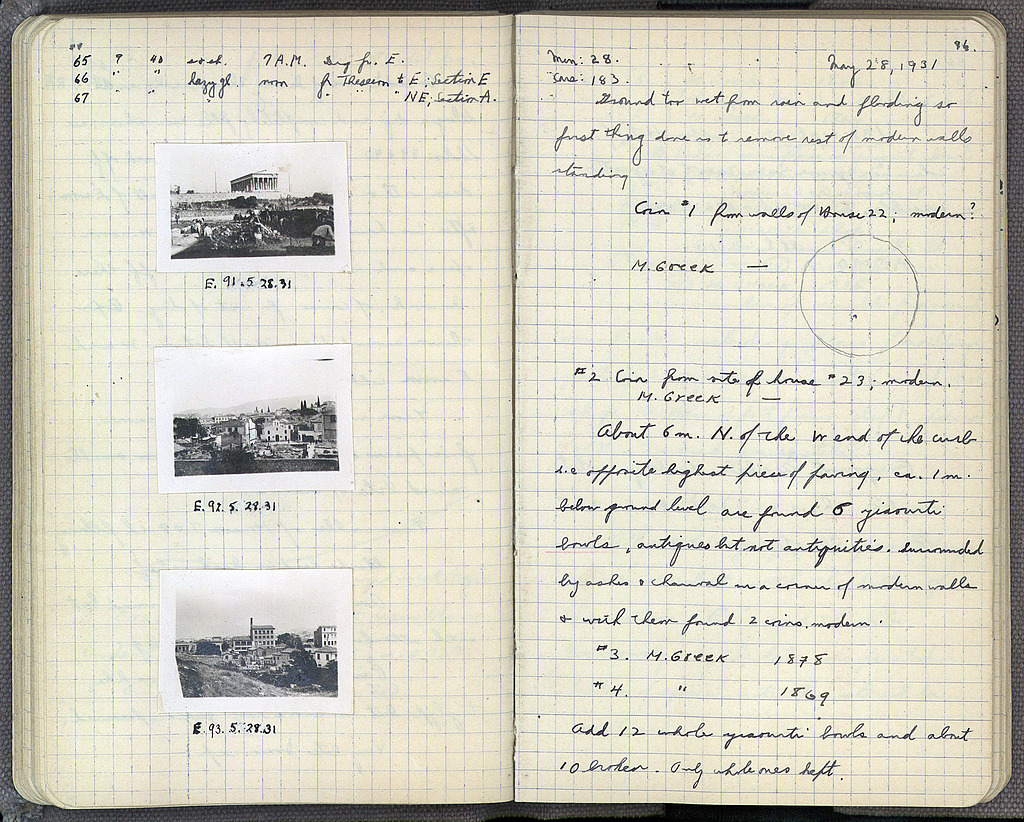 65 9 40 7 A.M. fr. E.
66 " " hazy gl. noon fr. Theseion to E; Section E
67 " " " " NE; Section A.
E. 91. 5. 28. 31
E. 92. 5. 28. 31
E. 93. 5. 28. 31
86.
Men: 28. May 28, 1931
Cars: 183.
Ground too wet from rain and flooding so
first thing done is to remove rest of modern walls
standing
Coin #1 from walls of House 22; modern?
M. Greek —
#2 Coin from site of house #23; modern.
M. Greek —
About 6 m. N. of the W end of the curb
i.e opposite highest piece of paving, ca. 1 m.
below ground level are found 6 yiaourti
bowls, antiques but not antiquities. Surrounded
by ashes & charcoal in a corner of modern walls
& with them found 2 coins, modern.
#3. M. Greek 1878
#4. " 1869
Add 12 whole yiaourti bowls and about
10 broken. Only whole ones kept.